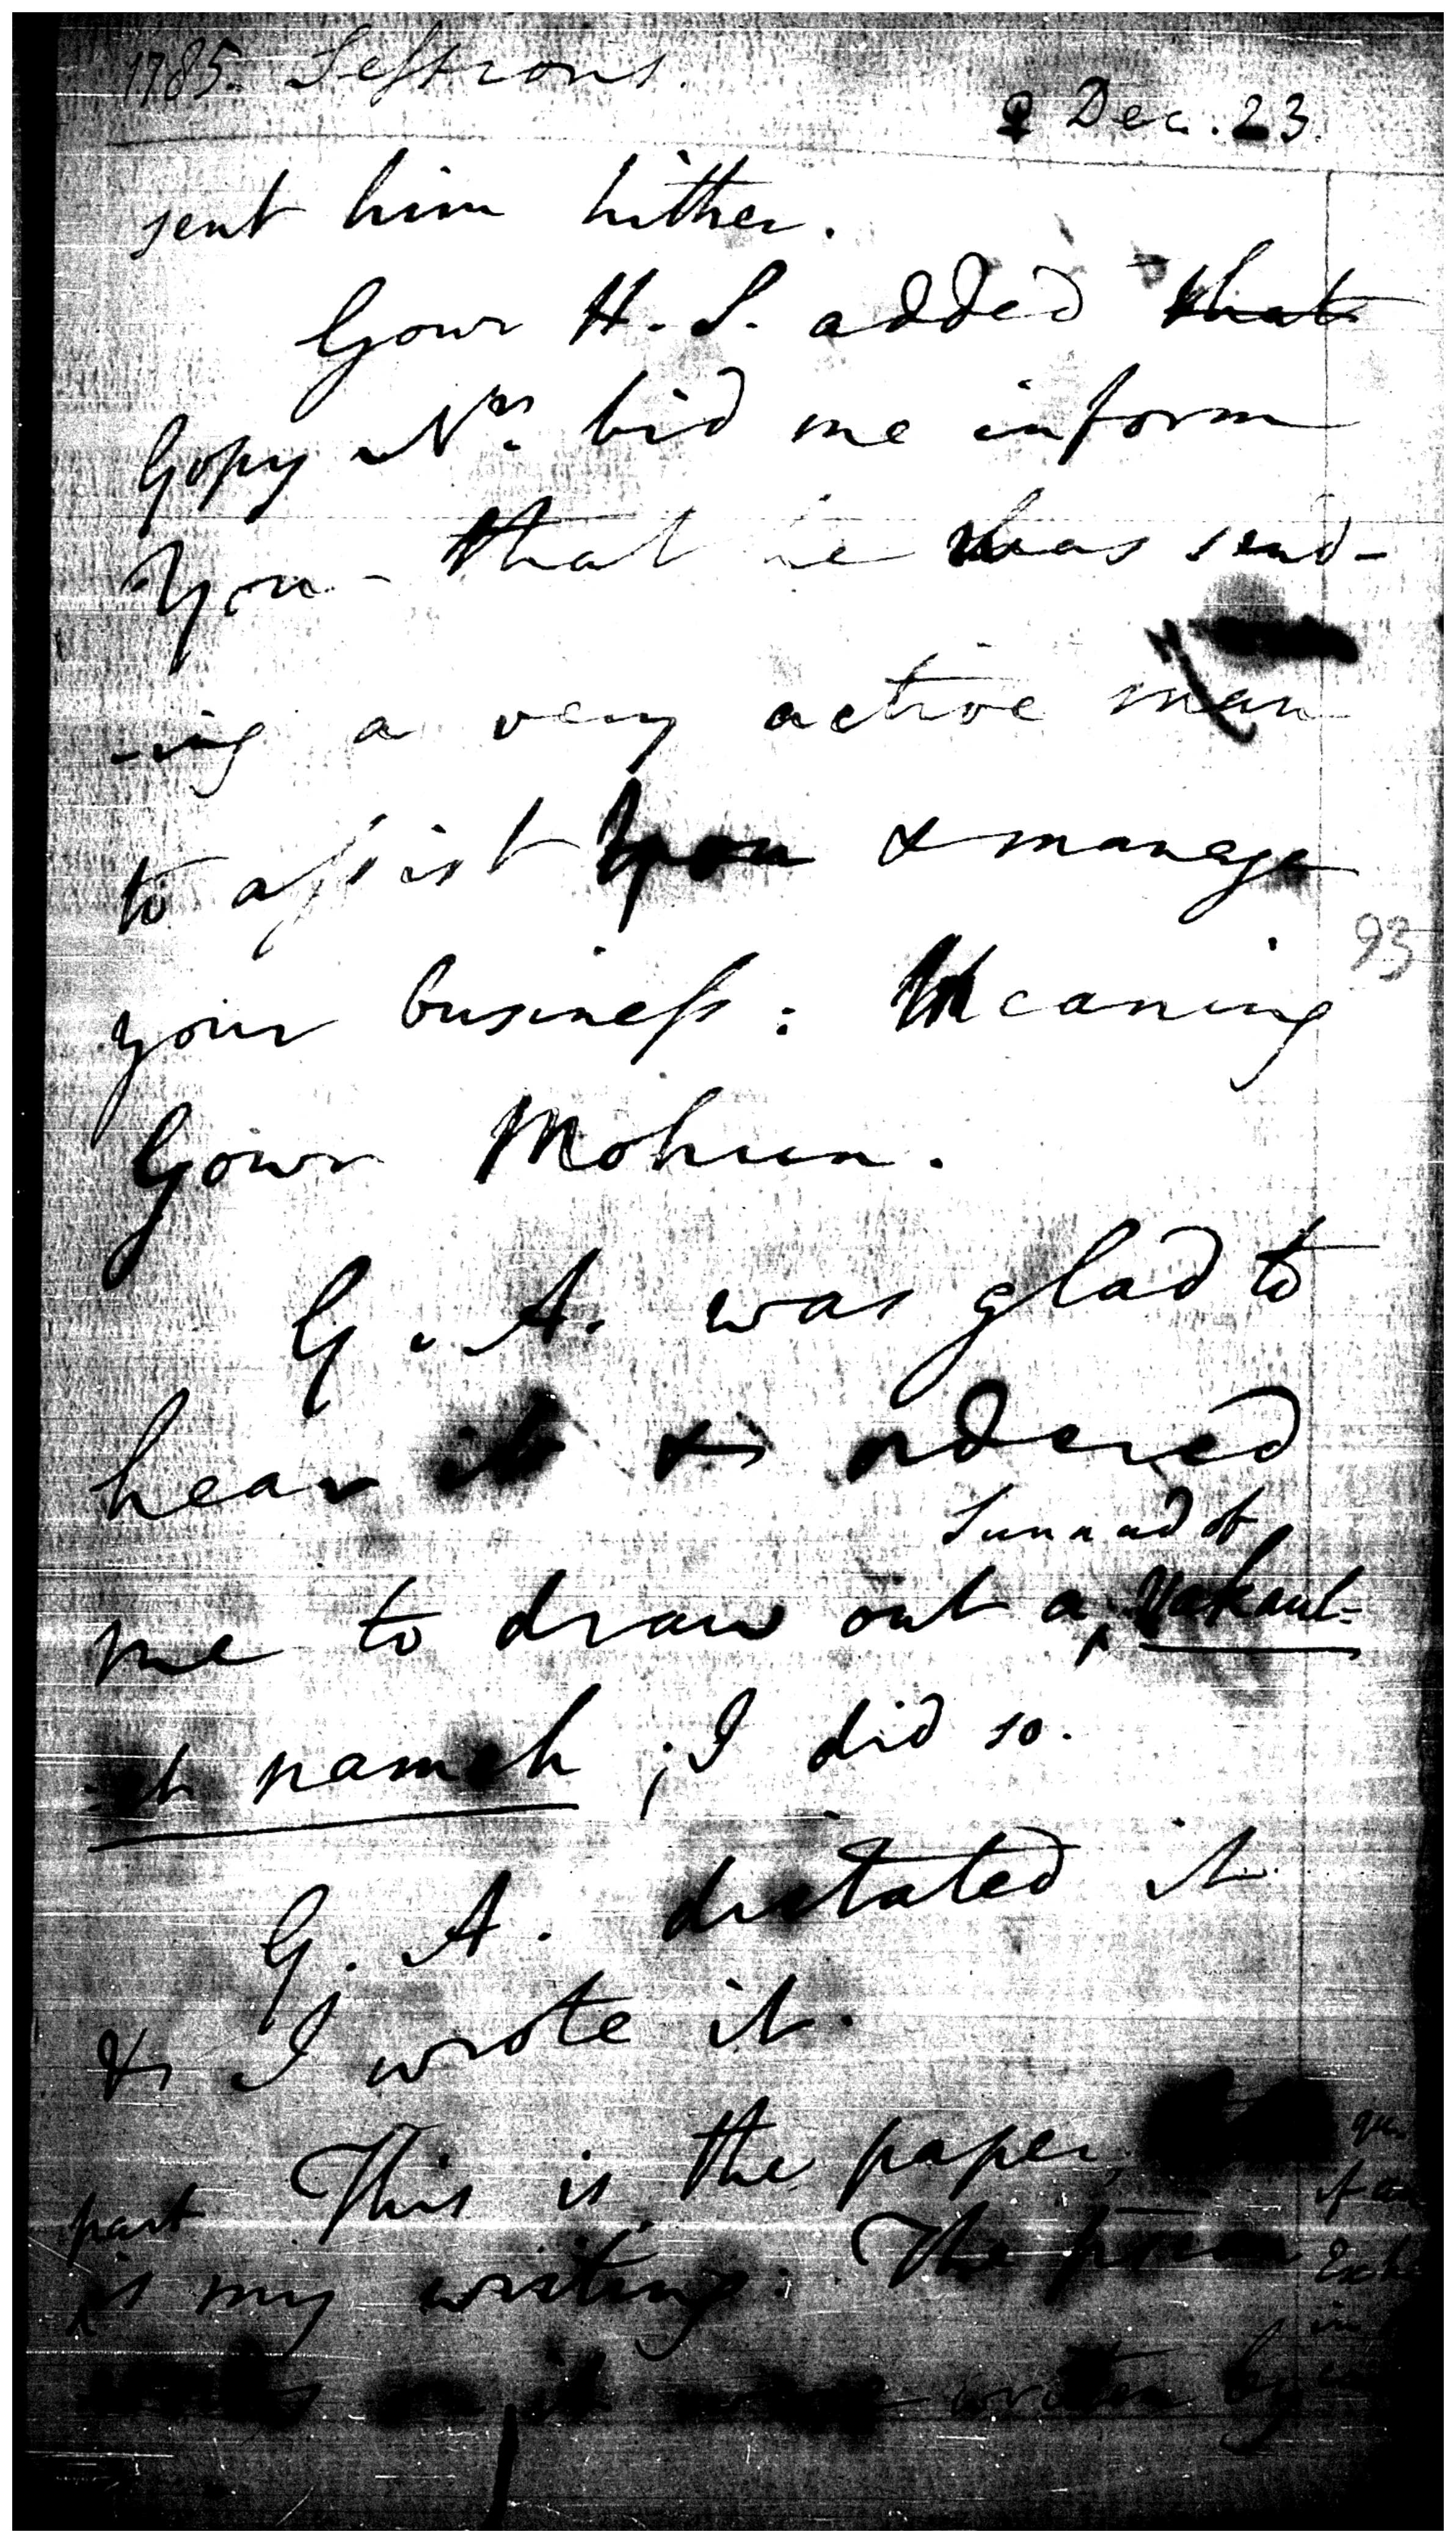 1785. Sessions.
♀ Dec. 23.
sent him hither.
Gour H. S. added that
Gopy Nr. bid me inform
You - that he was send-
-ing a very active man
to assist You & manage
93
your business: Meaning
Gour Mohun.
G. A. was glad to
hear it & ordered
Sunnud of
me to draw out a Vakaul-
-et nameh; I did so.
G. A. dictated it
& I wrote it.
This is the paper,
part
is my writing. The
on it were written by